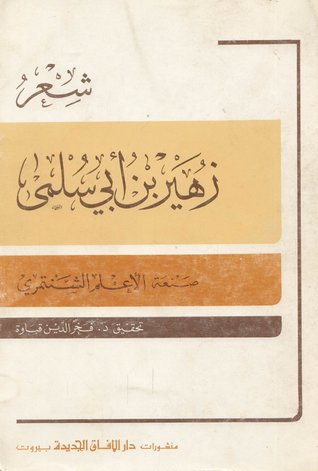 شِعْرُ
زُهَيْر بْن أبي سُلْمى
صَنعَة الأعْلم الشَّنتَمري
تحقيق د. فخر الدّين قباوة
منشورات دار الآفاق الجديدة بيروت